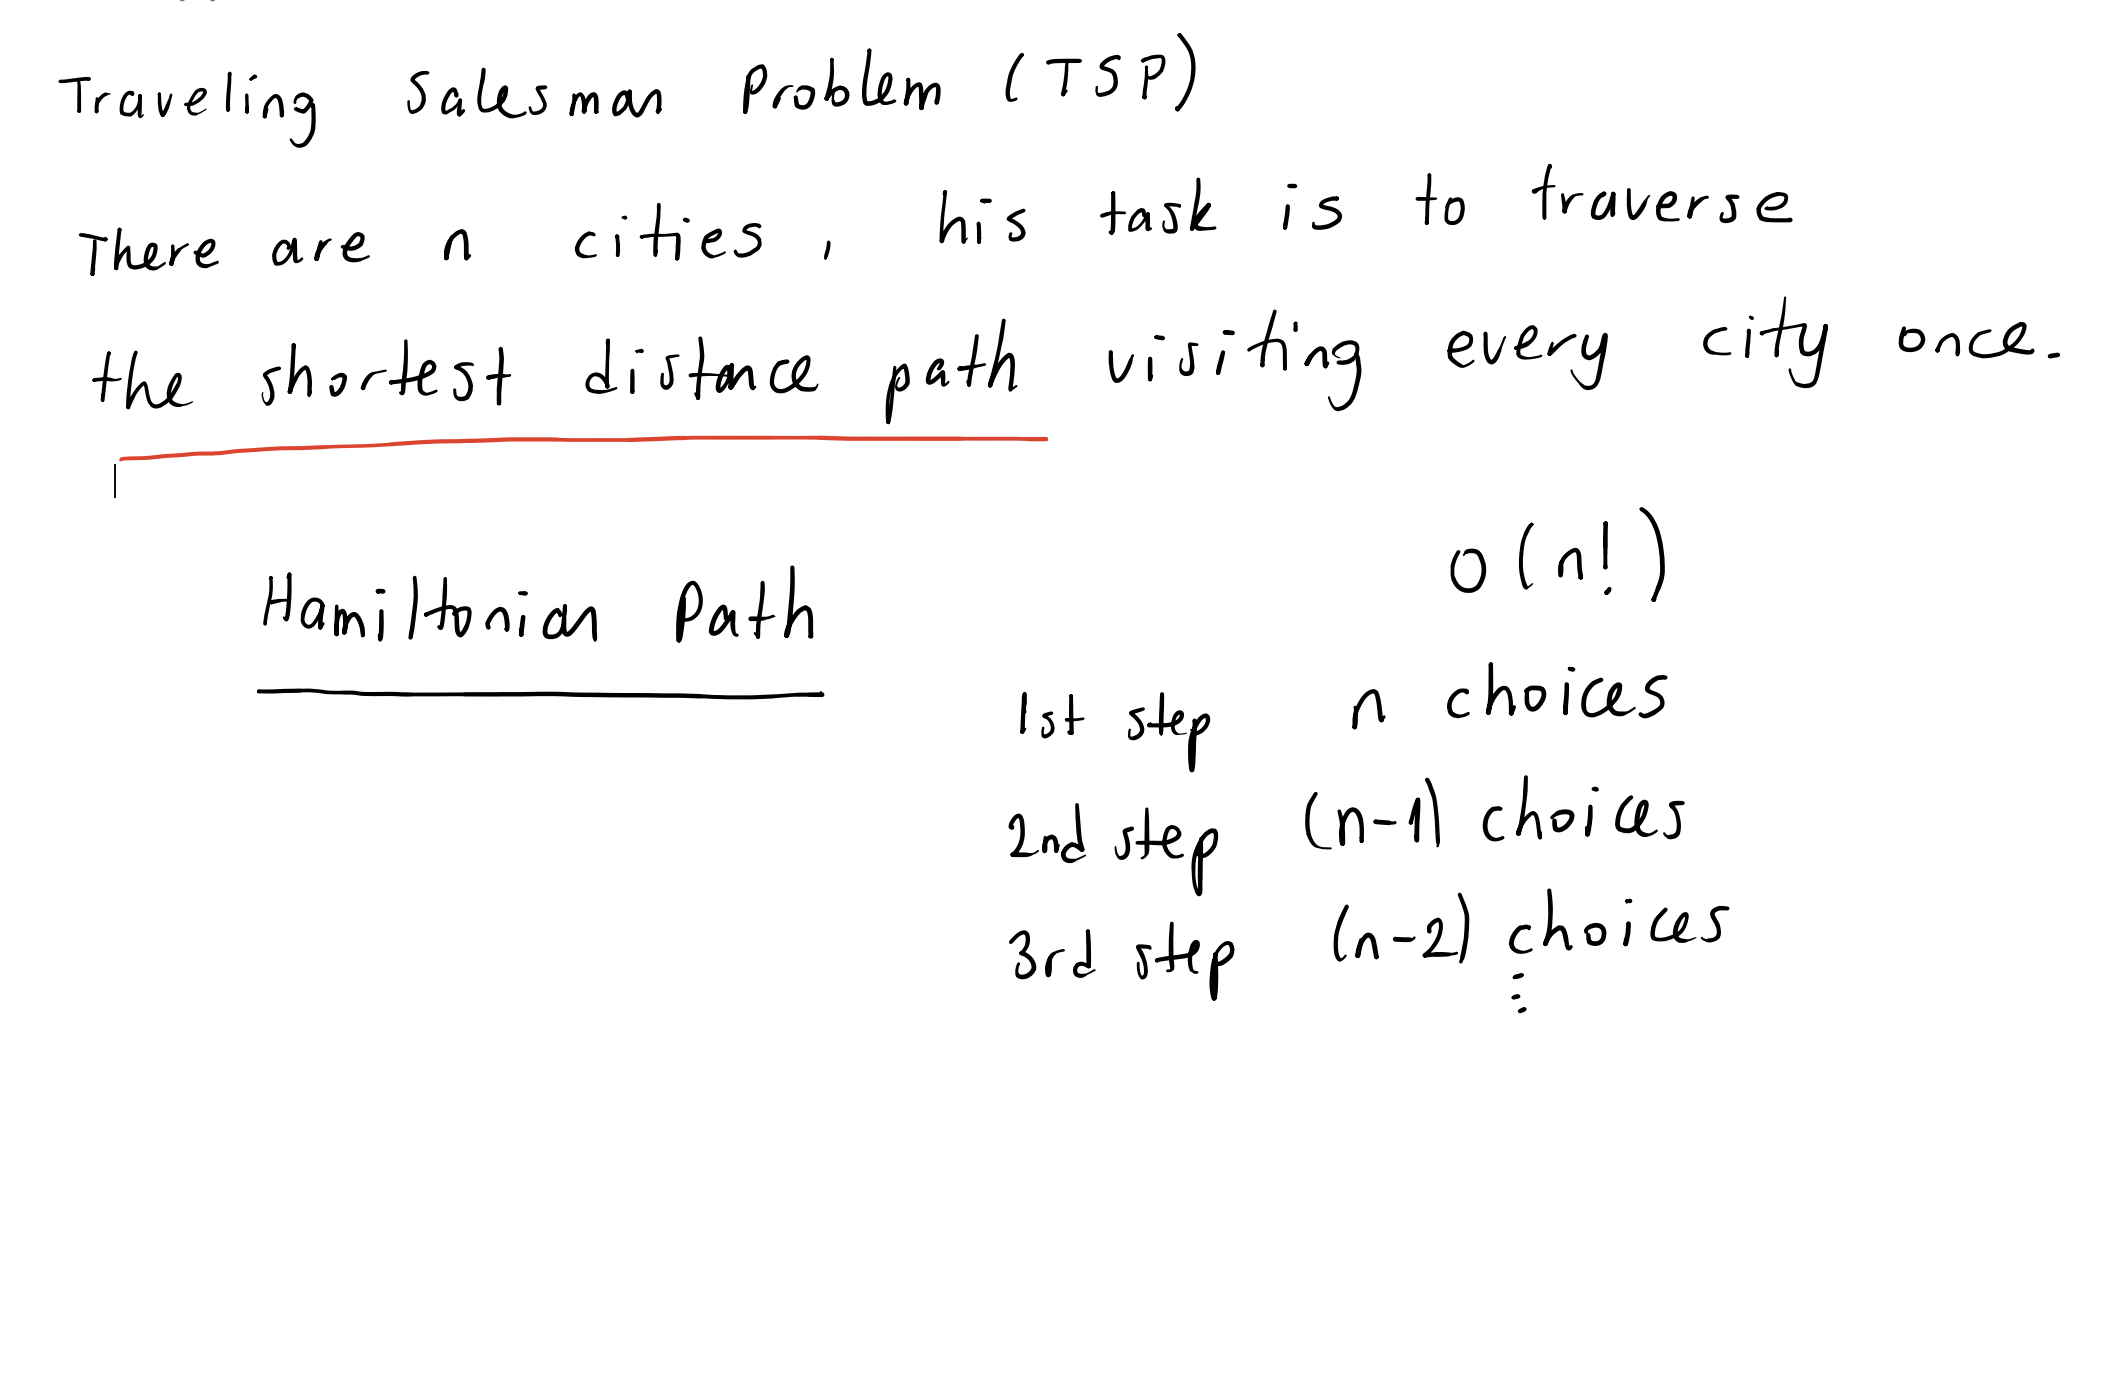 Traveling Salesman Problem (TSP)
There are n cities, his task is to traverse
the shortest distance path visiting every city once.
Hamiltonian Path
O(n!)
1st step n choices
2nd step (n-1) choices
3rd step (n-2) choices
⋮